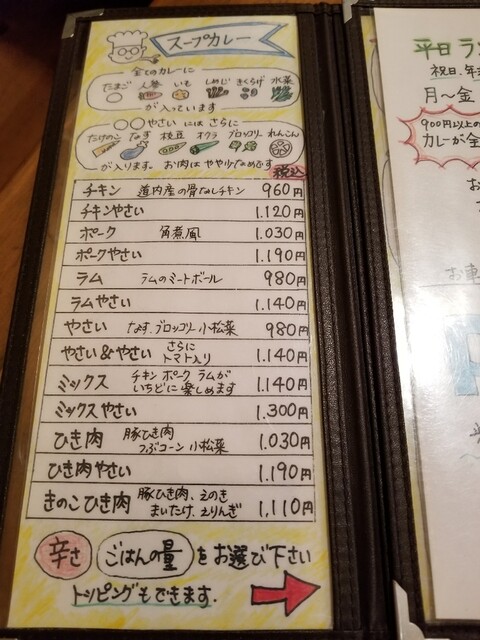 スープカレー
全てのカレーに
たまご 人参 いも しめじ きくらげ 水菜
が入っています
〇〇やさい には さらに
たけのこ なす 枝豆 オクラ ブロッコリー れんこん
が入ります。 お肉は やや少なめです
税込
チキン 道内産の骨なしチキン 960円
チキンやさい 1.120円
ポーク 角煮風 1.030円
ポークやさい 1.190円
ラム ラムのミートボール 980円
ラムやさい 1.140円
やさい なす、ブロッコリー 小松菜 980円
やさい&やさい さらに トマト入り 1.140円
ミックス チキン ポーク ラムが いちどに楽しめます 1.140円
ミックスやさい 1.300円
ひき肉 豚ひき肉 つぶコーン 小松菜 1.030円
ひき肉やさい 1.190円
きのこひき肉 豚ひき肉、えのき まいたけ、えりんぎ 1,110円
辛さ ごはんの量 をお選び下さい
トッピングもできます.
平日ラン
祝日、年
月〜金
900円以上の
カレーが全
お車